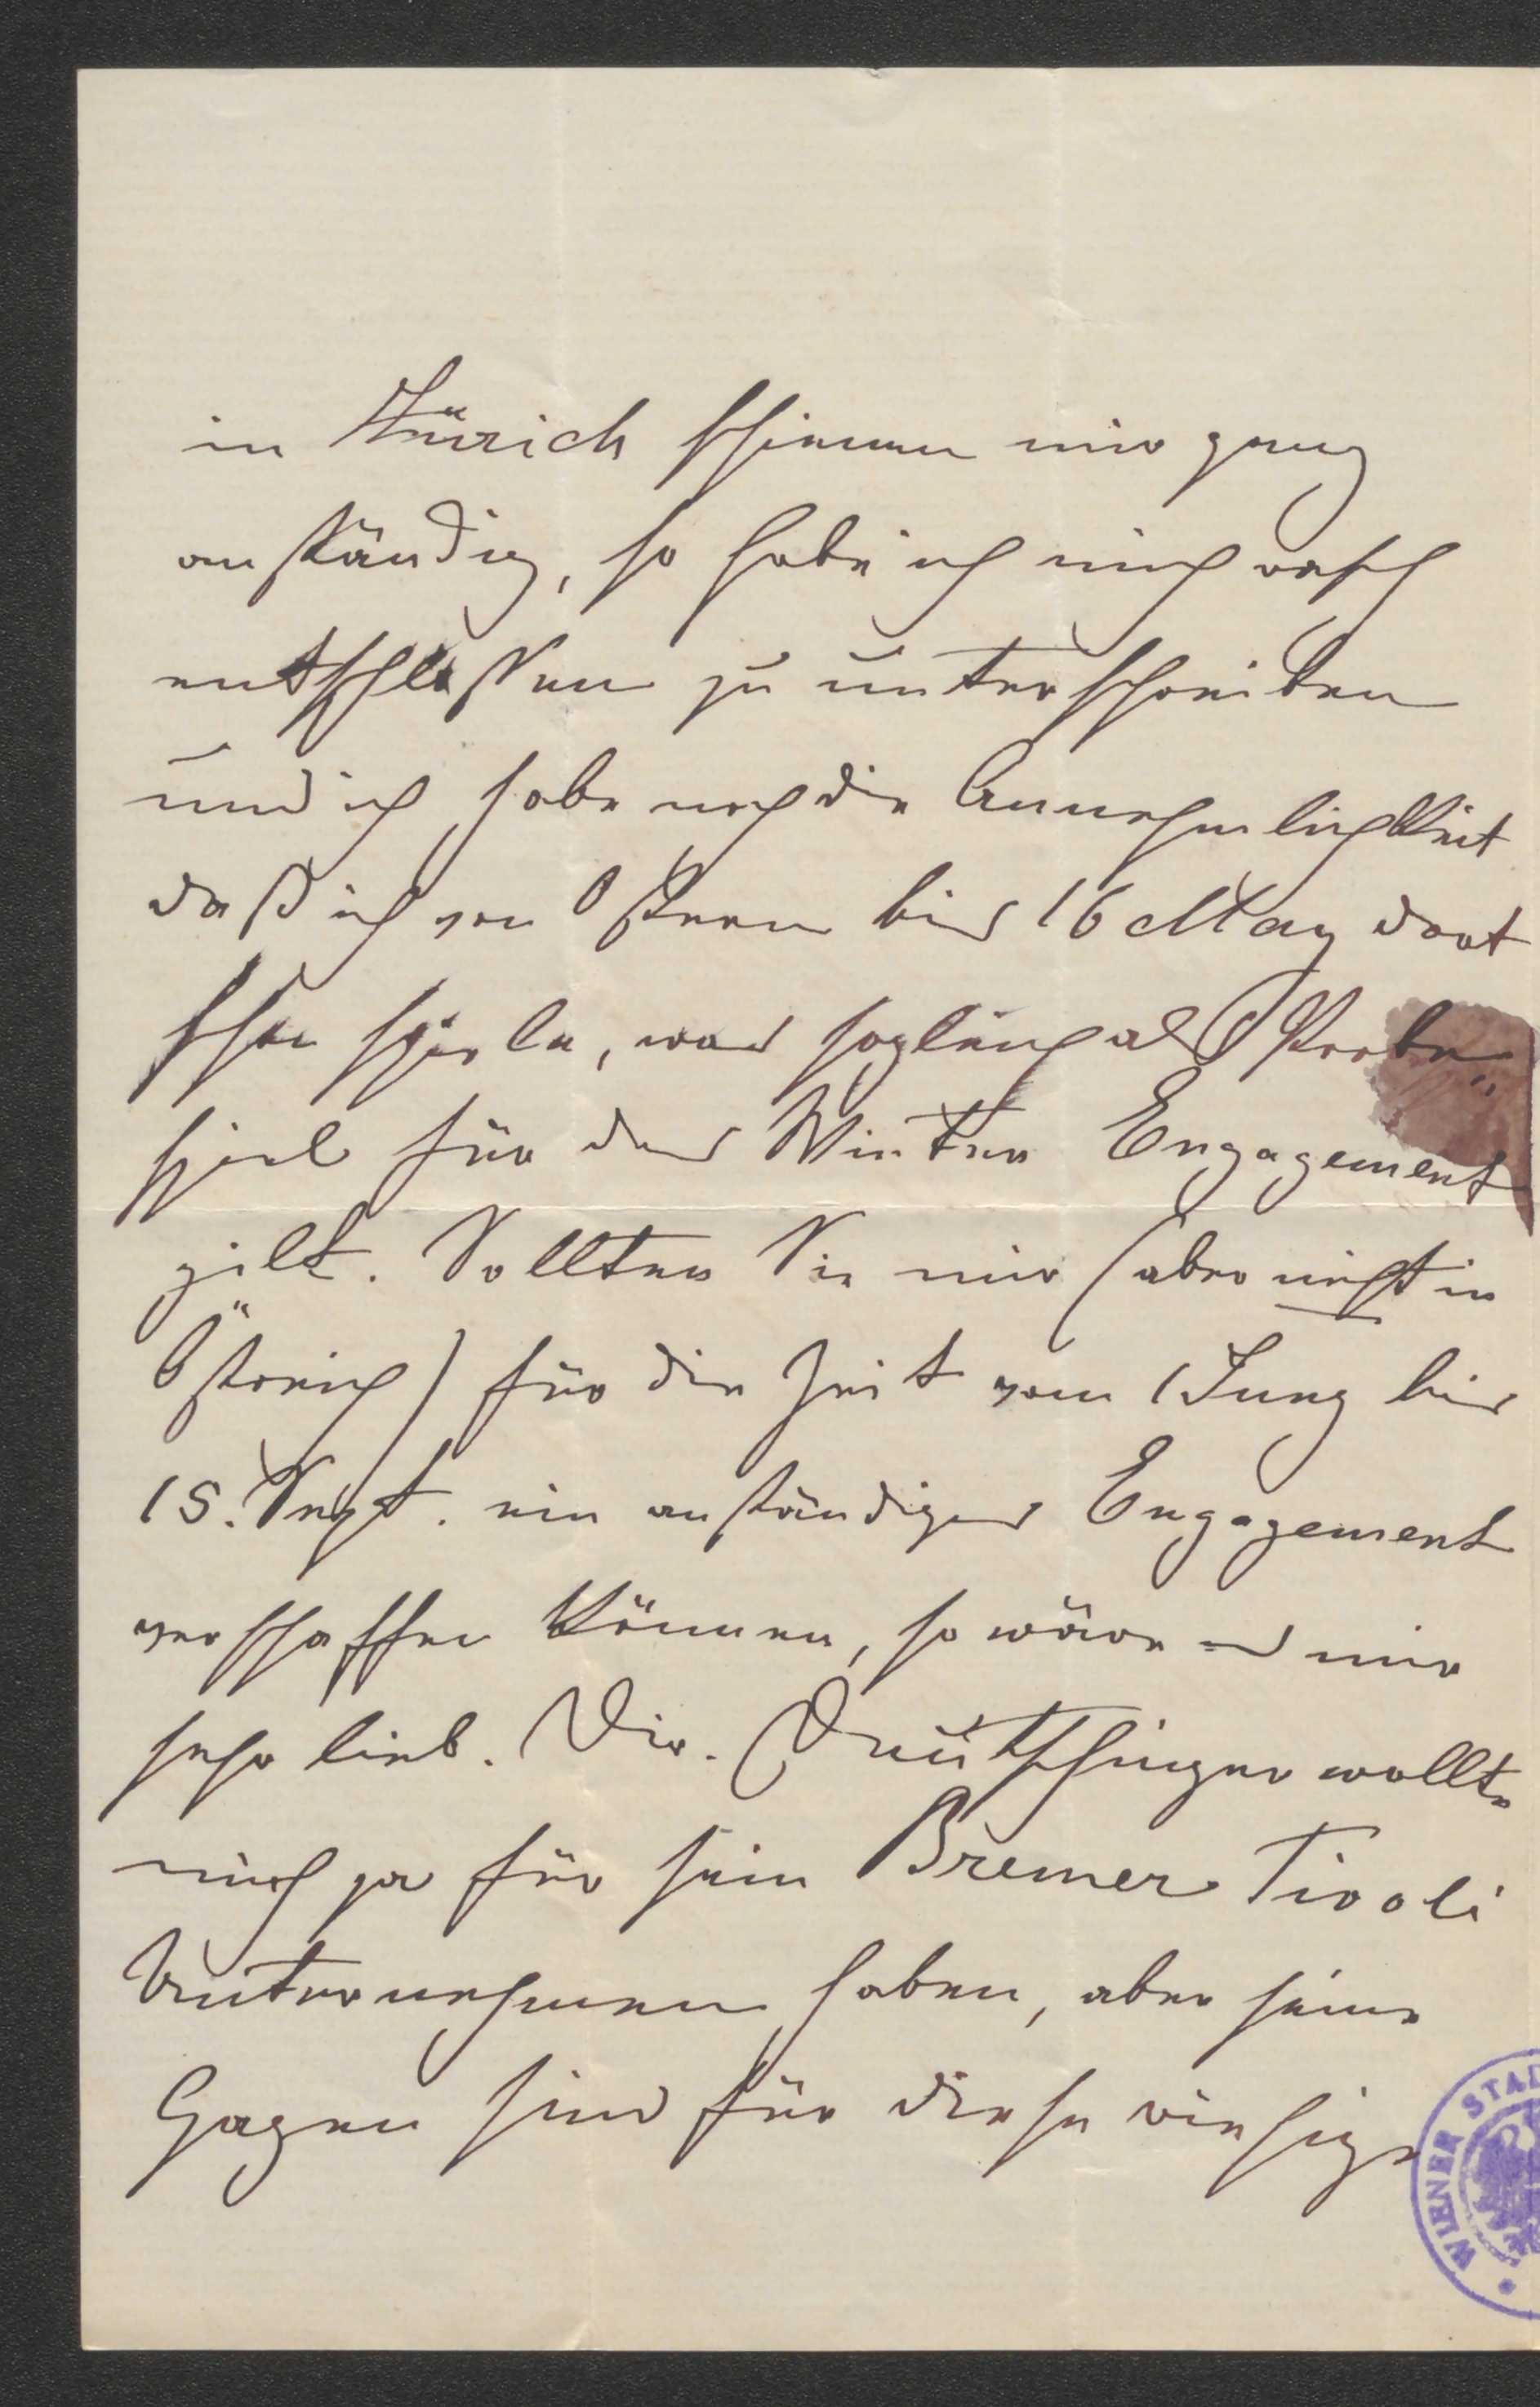 in Zürich schienen mir ganz
anständig, so habe ich mich rasch
entschlossen zu unterschreiben
und ich habe noch die Annehmlichkeit
daß ich von Ostern bis 16 May dort
schon spiele, was sogleich als Probe„
spiel für das Winter Engagement
gilt. Sollten Sie mir (aber nicht in
Östreich) für die Zeit vom 1 Juny bis
15. Sept. ein anständiges Engagement
verschaffen können, so wäre es mir
sehr lieb. Dir. Deutschinger wollte
mich ja für sein Bremer Tivoli
Unternehmen haben, aber seine
Gagen sind für diese riesige
WIENER STAD